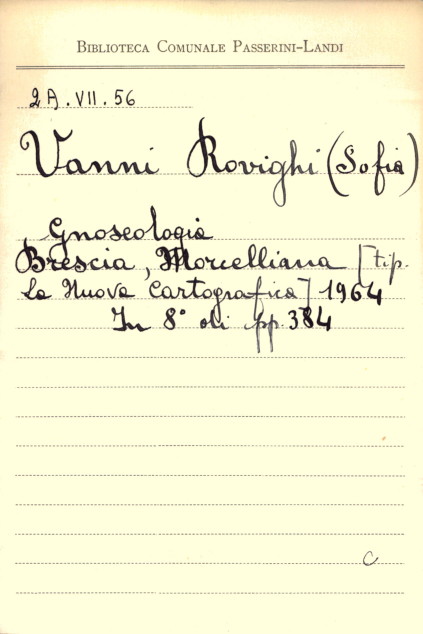 BIBLIOTECA COMUNALE PASSERINI-LANDI
2A.VII.56
Vanni Rovighi (Sofia)
Gnoseologia
Brescia, Morcelliana [tip.
La Nuova Cartografica] 1964
In 8° di pp. 384
C